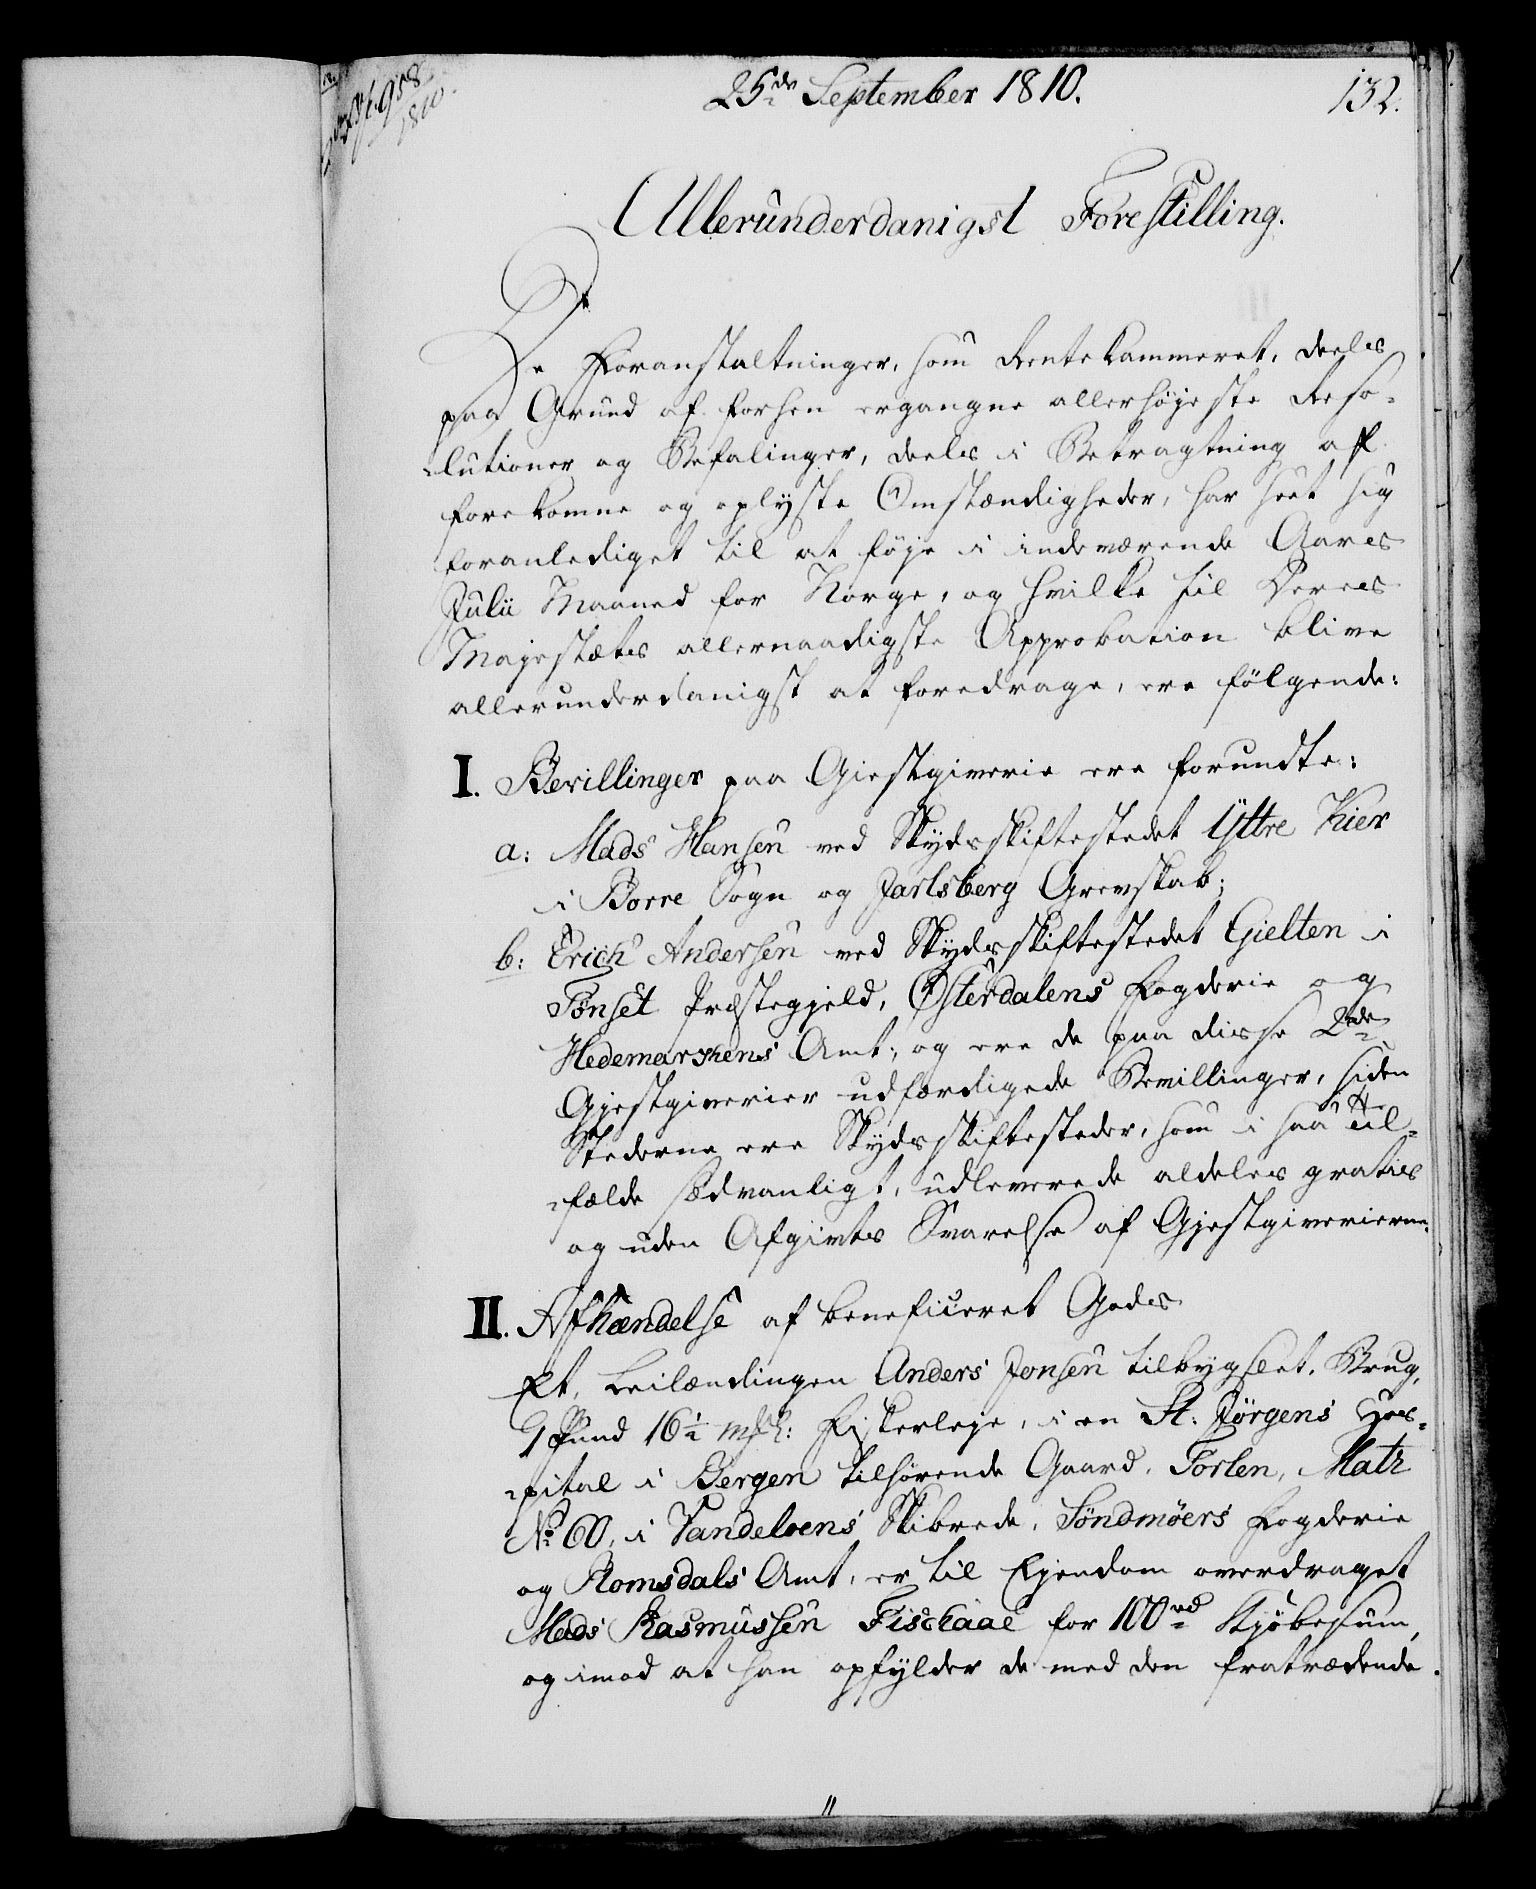 25de September 1810.
132.
958
1810.
Allerunderdanigst Forestilling.
De Foranstaltninger, som Rentekammeret, deels
paa Grund af forhen ergangne allerhøjeste Reso-
lutioner og Befalinger, deels i Betragtning af
forekomne og oplyste Omstændigheder, har seet sig
foranlediget til at føje i indeværende Aares
Julii Maaned for Norge, og hvilke til Deres
Majestæts allernaadigste Approbation blive
allerunderdanigst at foredrage, ere følgende:
I. Bevillinger paa Giestgiverie ere forundte:
a: Mads Hansen ved Skydsskiftestedet Ÿttre Kier
i Borre Sogn og Jarlsberg Grevskab;
b: Erich Andersen ved Skydsskiftestedet Gielten i
Tønset Præstegjeld, Østerdalens Fogderie og
Hedemarkens Amt; og ere de paa disse 2de
Gjestgiverier udfærdigede Bevillinger, siden
Stederne ere Skydsskiftesteder, som i saa Til-
fælde sædvanligt, udleverede aldeles gratis
og uden Afgivts Svarelse af Gjestgiverierne.
II. Afhændelse af beneficeret Gods
Et, Leilændingen Anders Jonsen tilbygslet, Brug,
1 Pund 16½ Fiskerleje, i en St: Jørgens Hos-
pital i Bergen tilhørende Gaard, Torlen, Matr
No 60, i Vandelvens Skibrede, Søndmøers Fogderie
og Romsdals Amt, er til Ejendom overdraget
Mads Rasmussen Fischaae for 100rd Kjøbesum,
og imod at han opfylder de med den fratrædende